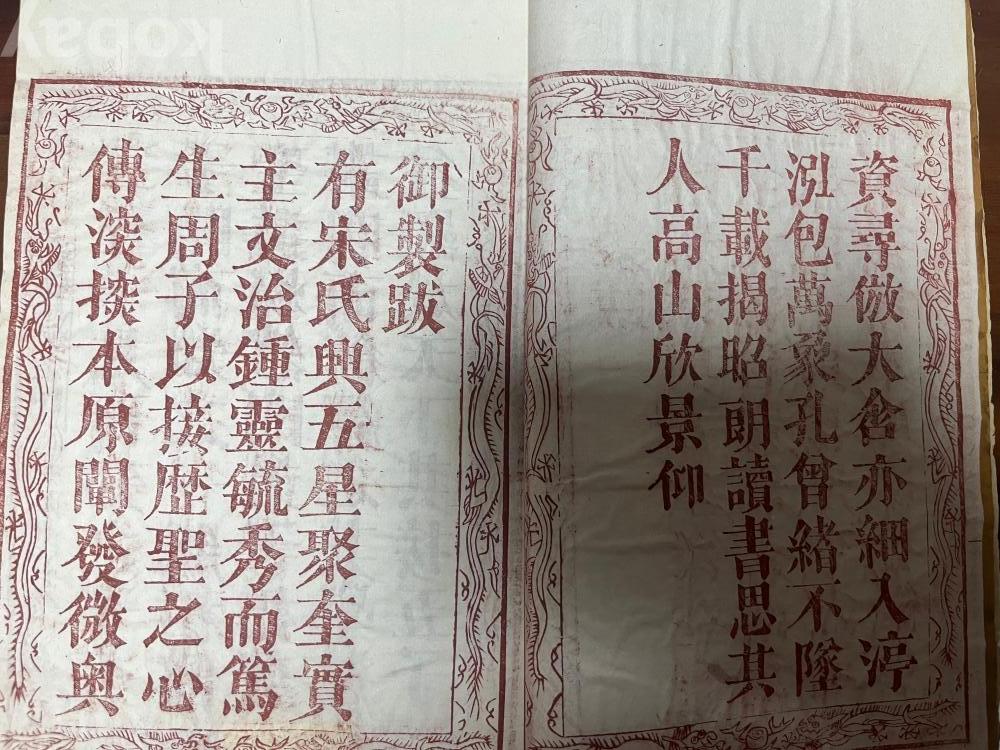 資尋倣大含亦細入渟
泓包萬彖孔曾緒不墜
千載揭昭朗讀書思其
人高山欣景仰
御製跋
有宋氏興五星聚奎實
主文治鍾靈毓秀而篤
生周子以接歴聖之心
傳深探本原闡發微奥
kobay